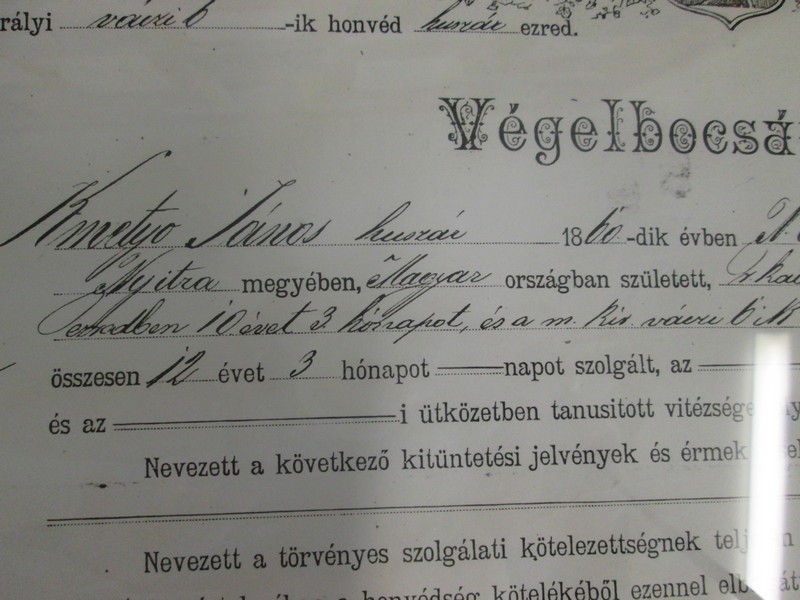 rályi váczi 6 -ik honvéd huszár ezred.
Végelbocsá
Kmetyo János huszár 1860-dik évben N.
Nyitra megyében, Magyar országban született,
ezredben 10 évet 3 hónapot, és a m. kir. váczi 6 ik
összesen 12 évet 3 hónapot napot szolgált, az
és az i ütközetben tanusitott vitézsége
Nevezett a következő kitüntetési jelvények és érmek
Nevezett a törvényes szolgálati kötelezettségnek
a honvédség kötelékéből ezennel